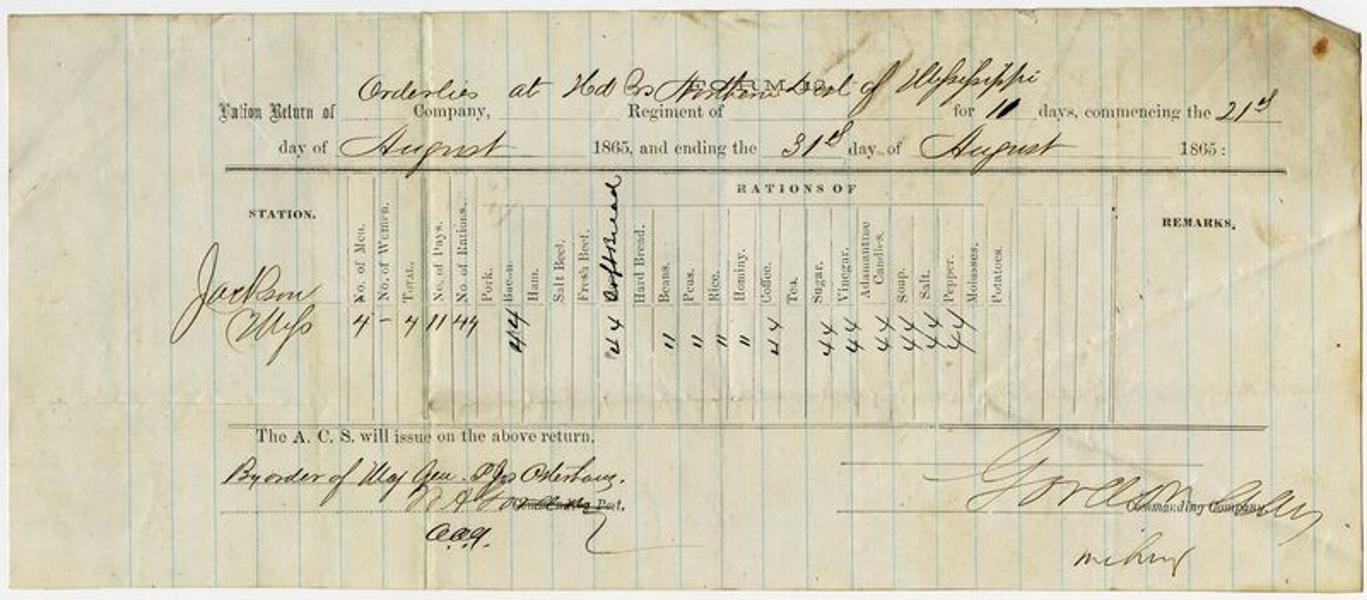 FORM 13.
Orderlies at Hd Qrs Northern Dist of Mississippi
Ration Return of Company, Regiment of for 11 days, commencing the 21st
day of August 1865, and ending the 31st day of August 1865:
RATIONS OF
STATION. No. of Men. No. of Women. TOTAL. No. of Days. No. of Rations. Pork. Bacon. Ham. Salt Beef. Fresh Beef. Soft Bread Hard Bread. Beans. Peas. Rice. Hominy. Coffee. Tea. Sugar. Vinegar. Adamantine Candles. Soap. Salt. Pepper. Molasses. Potatoes. REMARKS.
Jackson
Miss 4 - 4 11 44 44 44 " " " " 44 44 44 44 44 44 44
The A. C. S. will issue on the above return,
By order of Maj Gen. P Jos Osterhaus.
Commanding Post.
Commanding Company.
a.a.g.